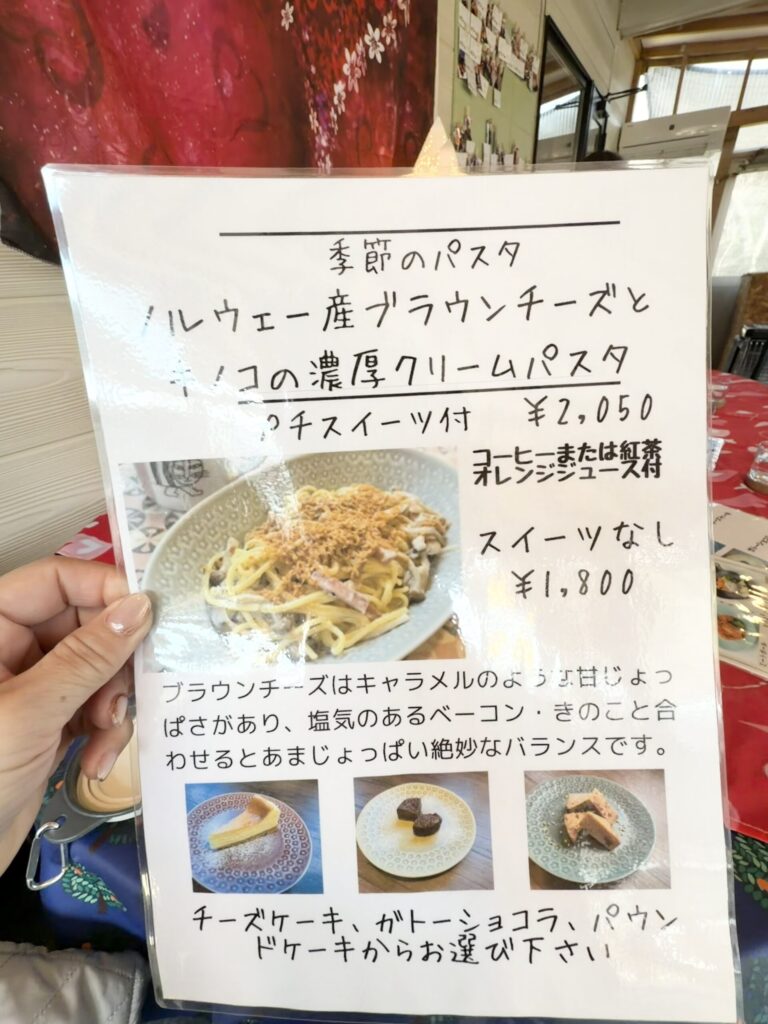 季節のパスタ
ノルウェー産ブラウンチーズと
キノコの濃厚クリームパスタ
プチスイーツ付 ¥2,050
コーヒーまたは紅茶
オレンジジュース付
スイーツなし
¥1,800
ブラウンチーズはキャラメルのような甘じょっ
ぱさがあり、塩気のあるベーコン・きのこと合
わせるとあまじょっぱい絶妙なバランスです。
チーズケーキ、ガトーショコラ、パウン
ドケーキからお選び下さい